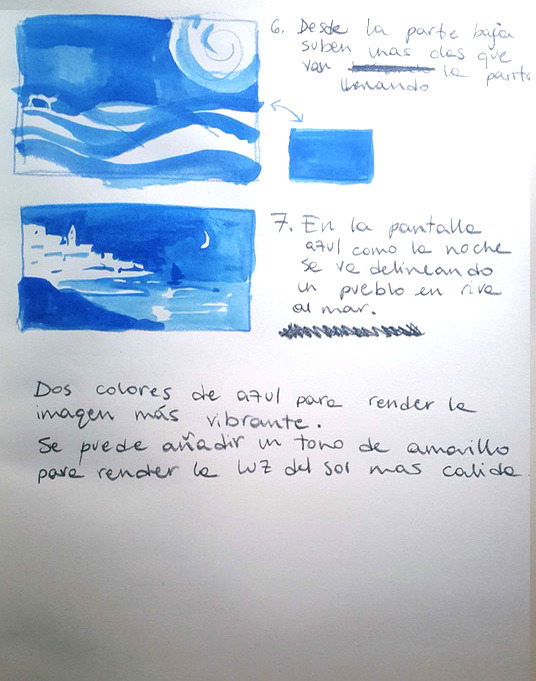 6. Desde la parte baja
suben unas olas que
van la parte
llenando
7. En la pantalla
azul como la noche
se va delineando
un pueblo en riva
al mar.
Dos colores de azul para render la
imagen más vibrante.
Se puede añadir un tono de amarillo
para render la luz del sol mas calida.